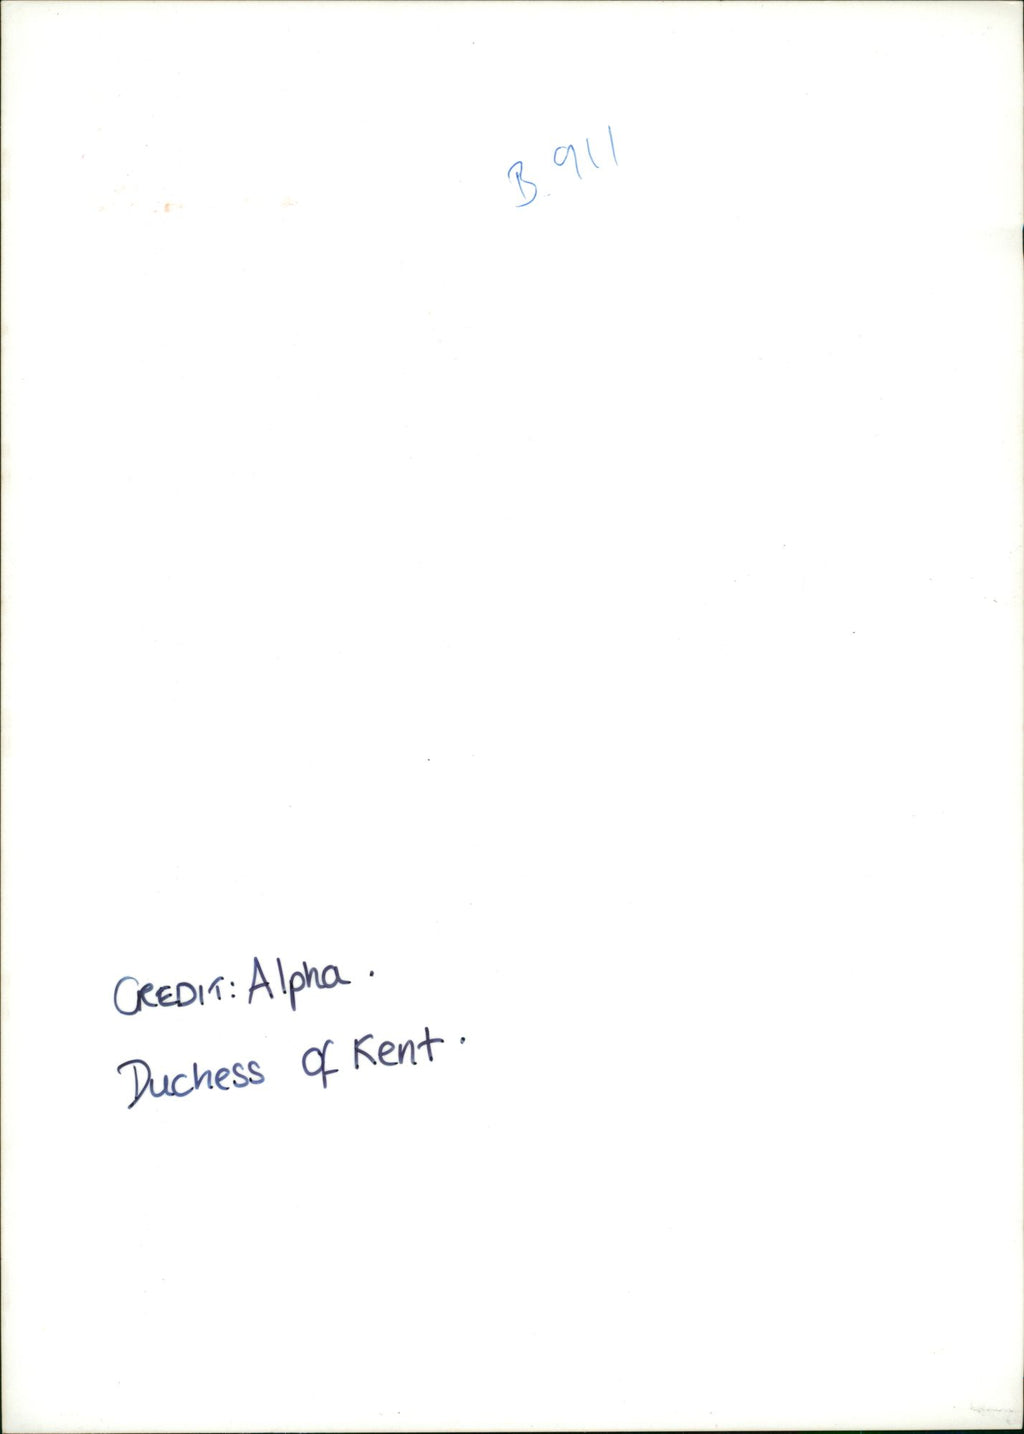 B.911
CREDIT: Alpha.
Duchess of Kent.